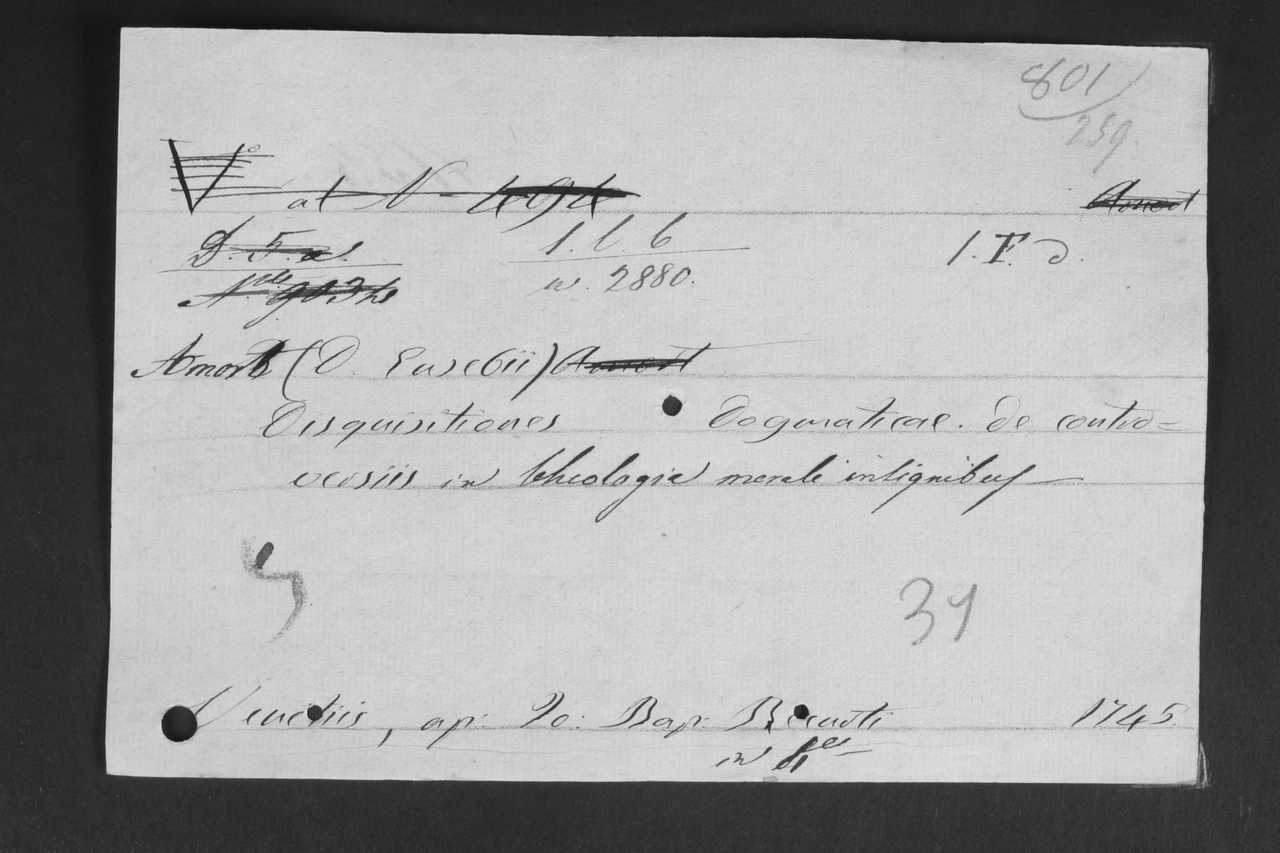 801
259.
at N 494
Amort
D. 5. a.
1. l. 6
1. F. d.
N.
n. 2880.
Amort (D. Eusebii) Amort
Disquisitiones Dogmaticae. de contro=
versiis in theologia morali insignibus
34
Venetiis, ap: Jo: Bap: Recurti 1745.
in